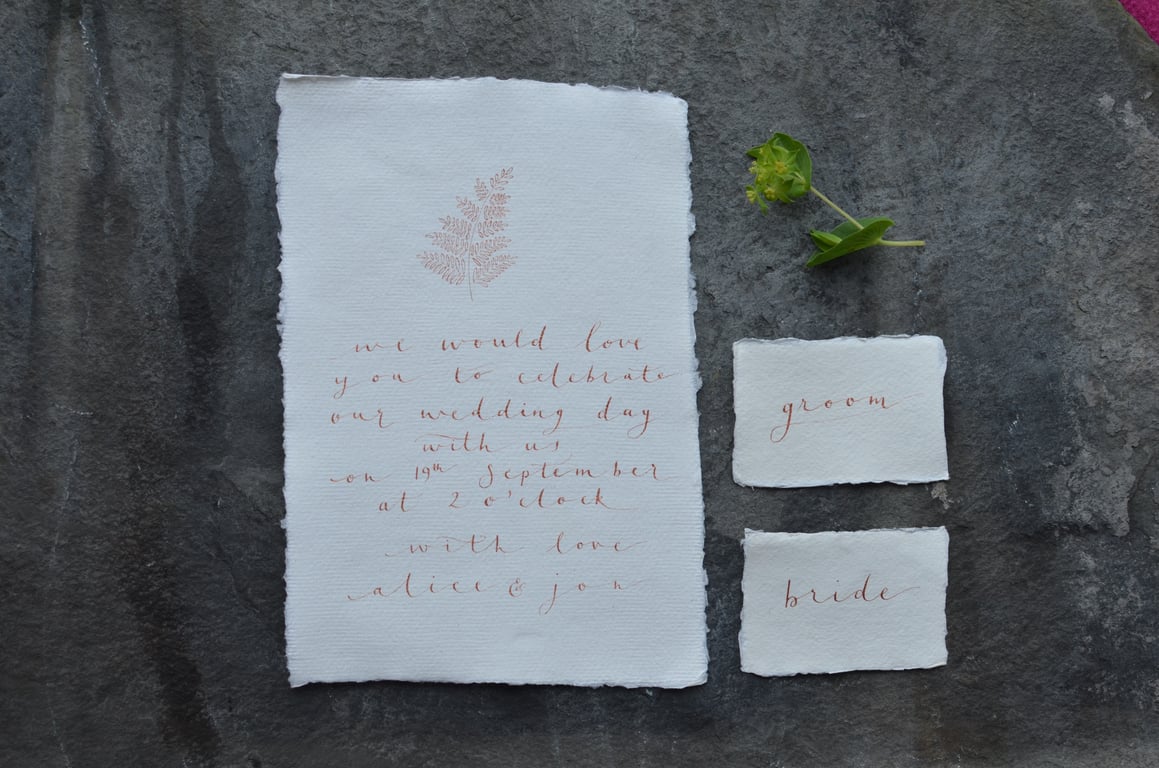 we would love
you to celebrate
our wedding day
with us
on 19th September
at 2 o'clock
with love
alice & jon
groom
bride